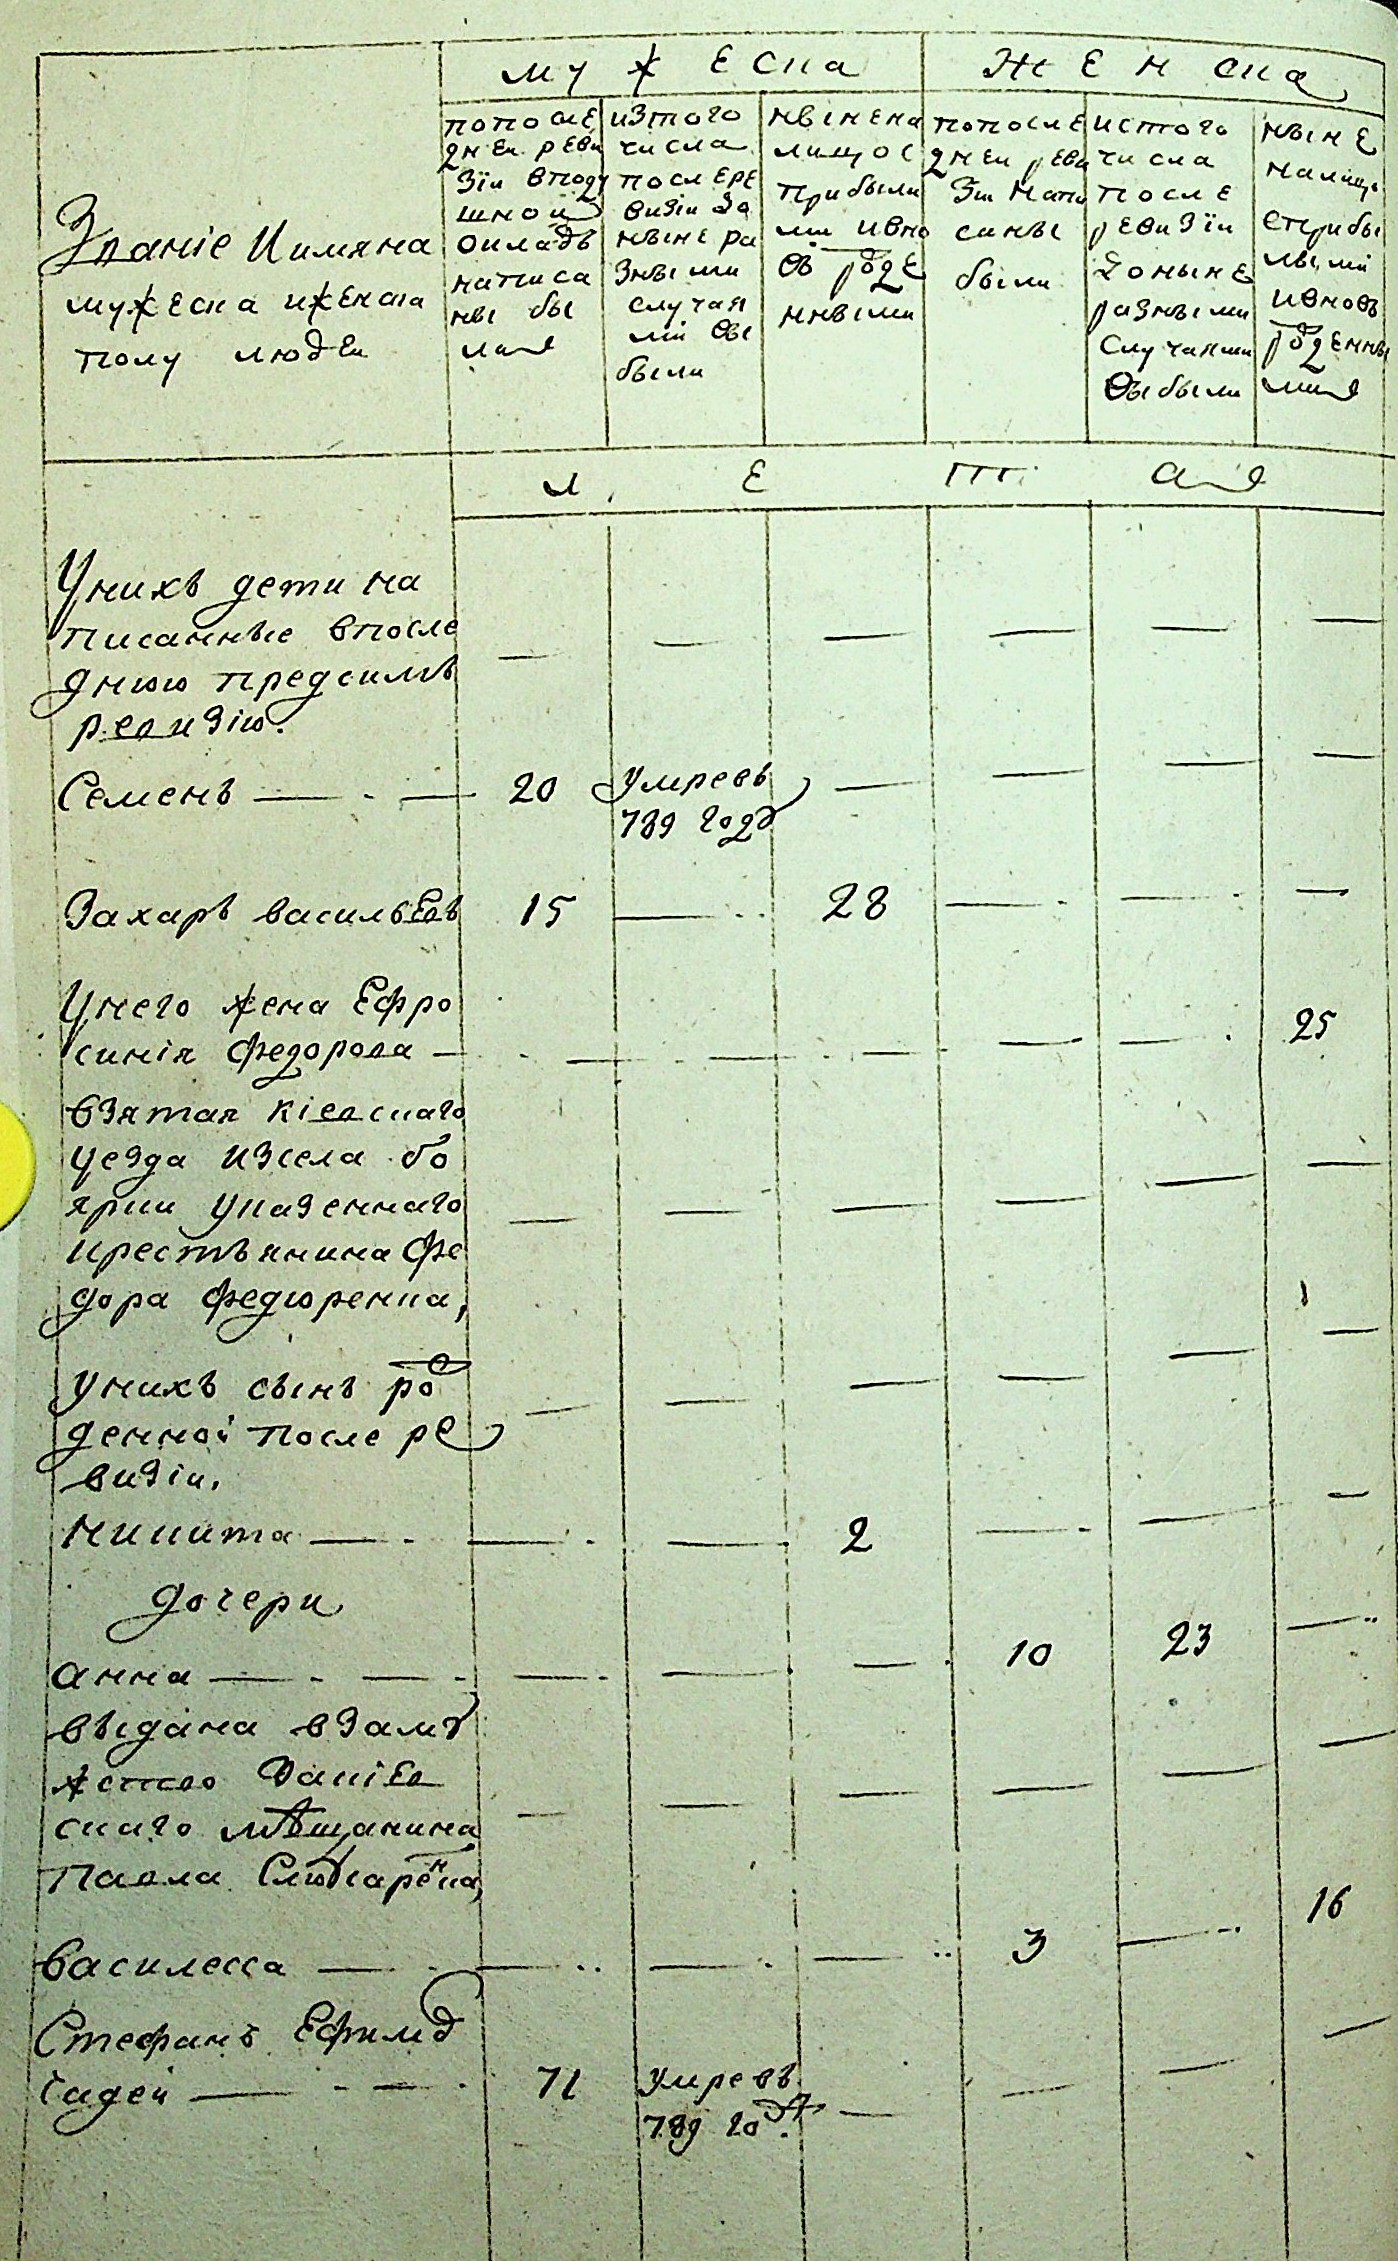 мужеска
женска
Званіе Иимяна
мужеска иженска
полу людеи
попосле
днеи реви
зіи вподу
шной
окладъ
написа
ны бы
ли
изтого
числа
послере
визіи до
ныне ра
зными
случая
ми вы
были
ныненали
лицо с
прибыли
ми ивно
въ роде
нными
попосле
днеи реви
зіи напи
саны
были
истого
числа
после
ревизіи
доныне
разными
случаями
выбыли
ныне
налицо
сприбы
лыми
ивновь
роденны
ми
лета
Унихъ дети на
писанные впосле
днюю предсимъ
ревизію.
Семенъ — 20 умревъ —
789 году
Захаръ васильевъ 15 — 28 — — —
Унего жена Ефро
синія Федорова — 25
взятая кіевскаго
уезда изсела бо
ярки указеннаго
крестьянина Фе
дора Федюренка,
унихъ сынъ ро
денной после ре
визіи.
Никита — — — 2 — — —
дочери
анна — — — — 10 23 —
выдана взаму
жство Ваміев
скаго мѣщанина
Павла Слюсаренка,
василесса — — — — 3 — 16
Стефанъ Ефимов
гидей — 71 умревъ — — — —
789 года.